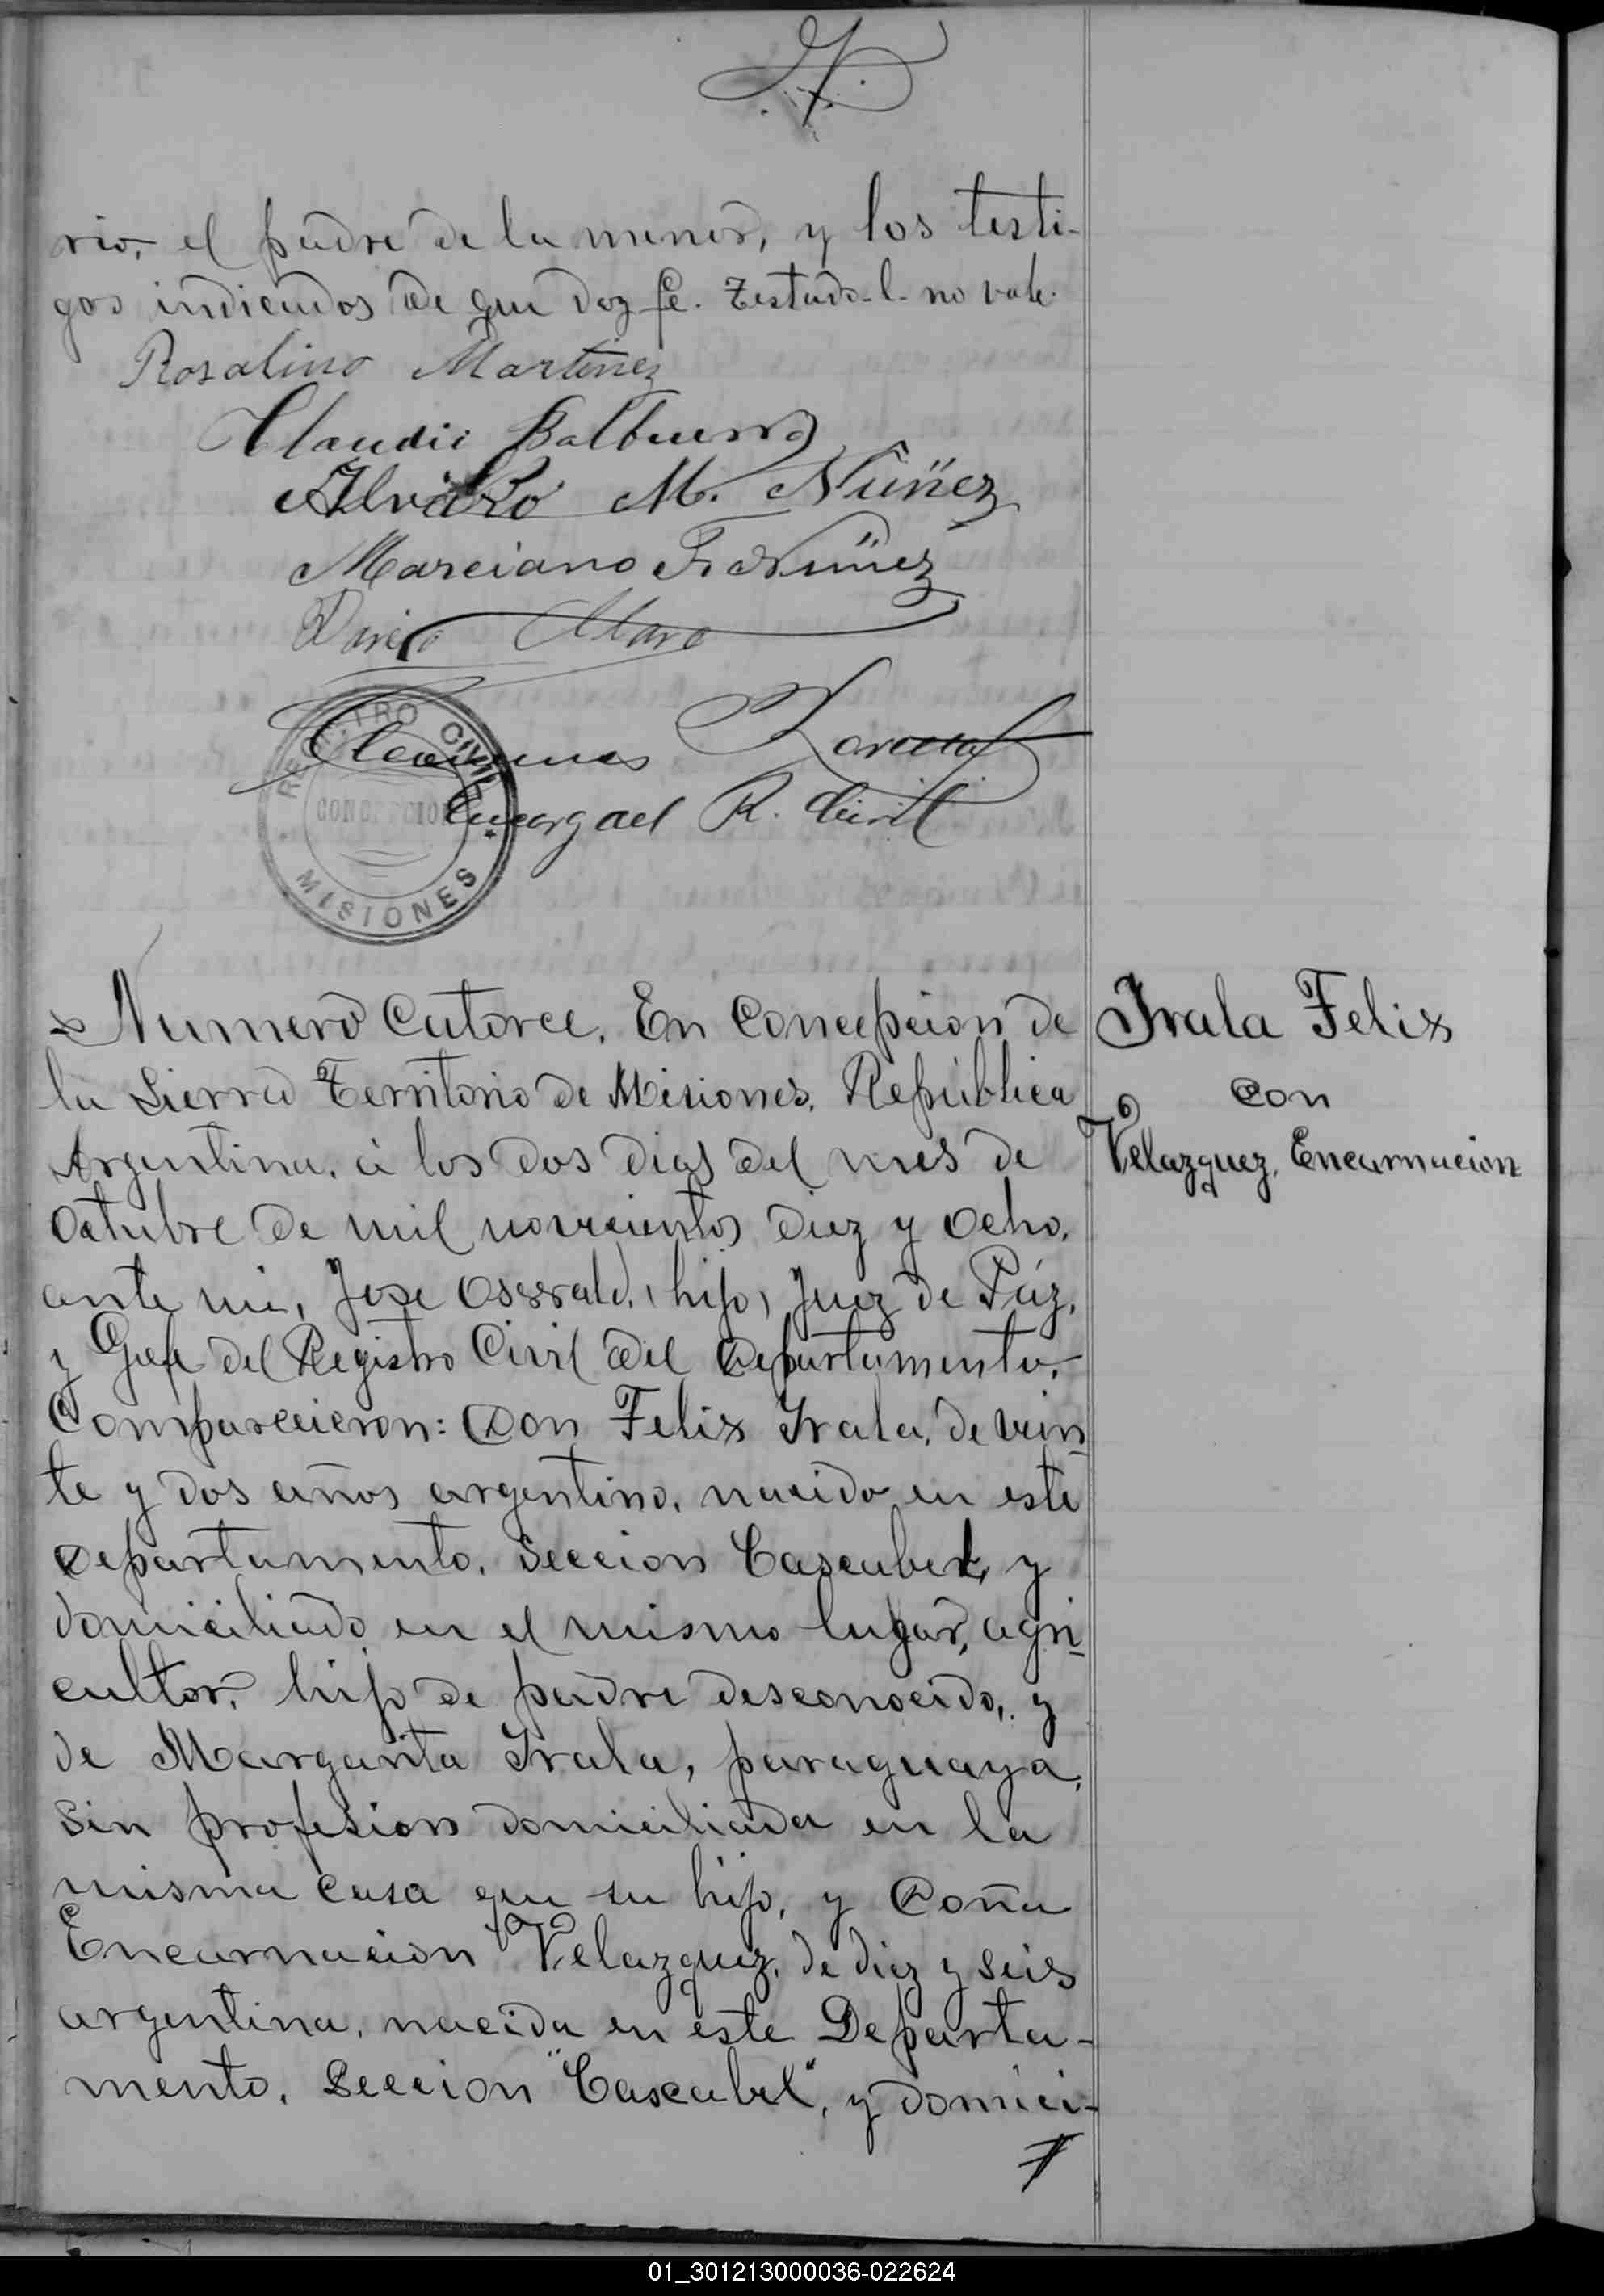 rio, el padre de la menor, y los testi-
gos indicados de que doy fe. Testado-l-no vale.
Rosalino Martinez
Claudio Balbuena
Alvaro M. Núñez
Marciano F. Núñez
REGISTRO CIVIL
CONCEPCION
MISIONES
Encargad R. Civil
Numero Catorce. En Concepcion de
la Sierra Territorio de Misiones, República
Argentina, á los dos dias del mes de
Octubre de mil novecientos diez y ocho,
ante mi, Jose Osswald, (hijo) Juez de Páz,
y Gefe del Registro Civil del Departamento,
Comparecieron: Don Felix Irala, de vein
te y dos años argentino, nacido en este
Departamento, Seccion Cascabel, y
domiciliado en el mismo lugar, agri
cultor, hijo de padre desconocido, y
de Margarita Irala, paraguaya,
sin profesion domiciliada en la
misma casa que su hijo, y Doña
Encarnacion Velazquez, de diez y seis
argentina, nacida en este Departa-
mento, Seccion "Cascabel", y domici-
Irala Felix
con
Velazquez, Encarnacion
01_301213000036-022624